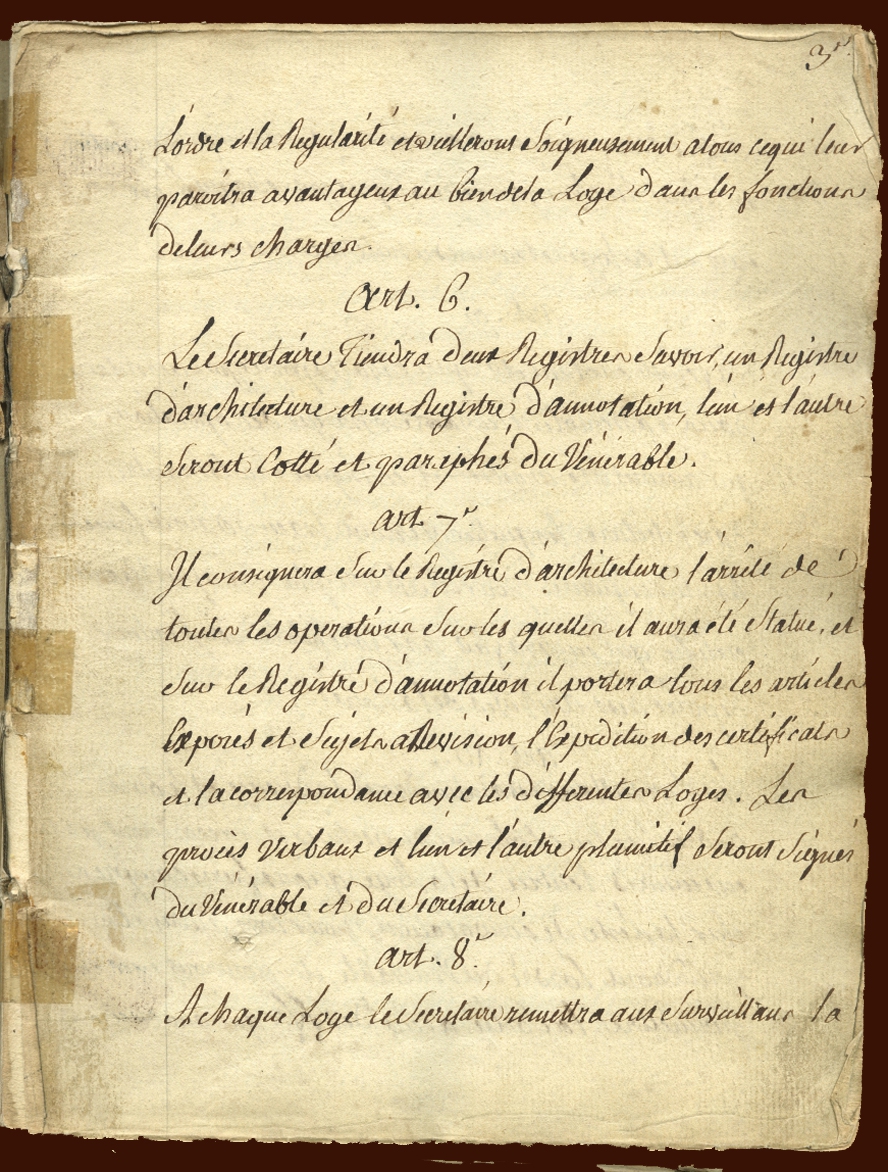 3.r
L'ordre et la Regularité et veillerons Soigneusement a tous ce qui leur
paroitra avantageux au bien de la Loge dans les fonctions
de leurs charges.
Art. 6.
Le Secretaire Tiendra deux Registres Savoir, un Registre
d'architecture et un Registre d'annotation, l'un et l'autre
Seront Cotté et paraphés du Vénérable.
art. 7.r
Il consignera Sur le Registre d'architecture l'arrêté de
toutes les operations Sur les quelles il aura été Statué, et
Sur le Registre d'annotation il portera tous les articles
Exposés et Sujets a Revision, l'Expedition des certificats
et la correspondance avec les differentes Loges. Les
procès Verbaux et l'un et l'autre plumitif Seront Signés
du Vénérable et du Secretaire.
art. 8.r
A chaque Loge le Secretaire remettra aux Surveillans la